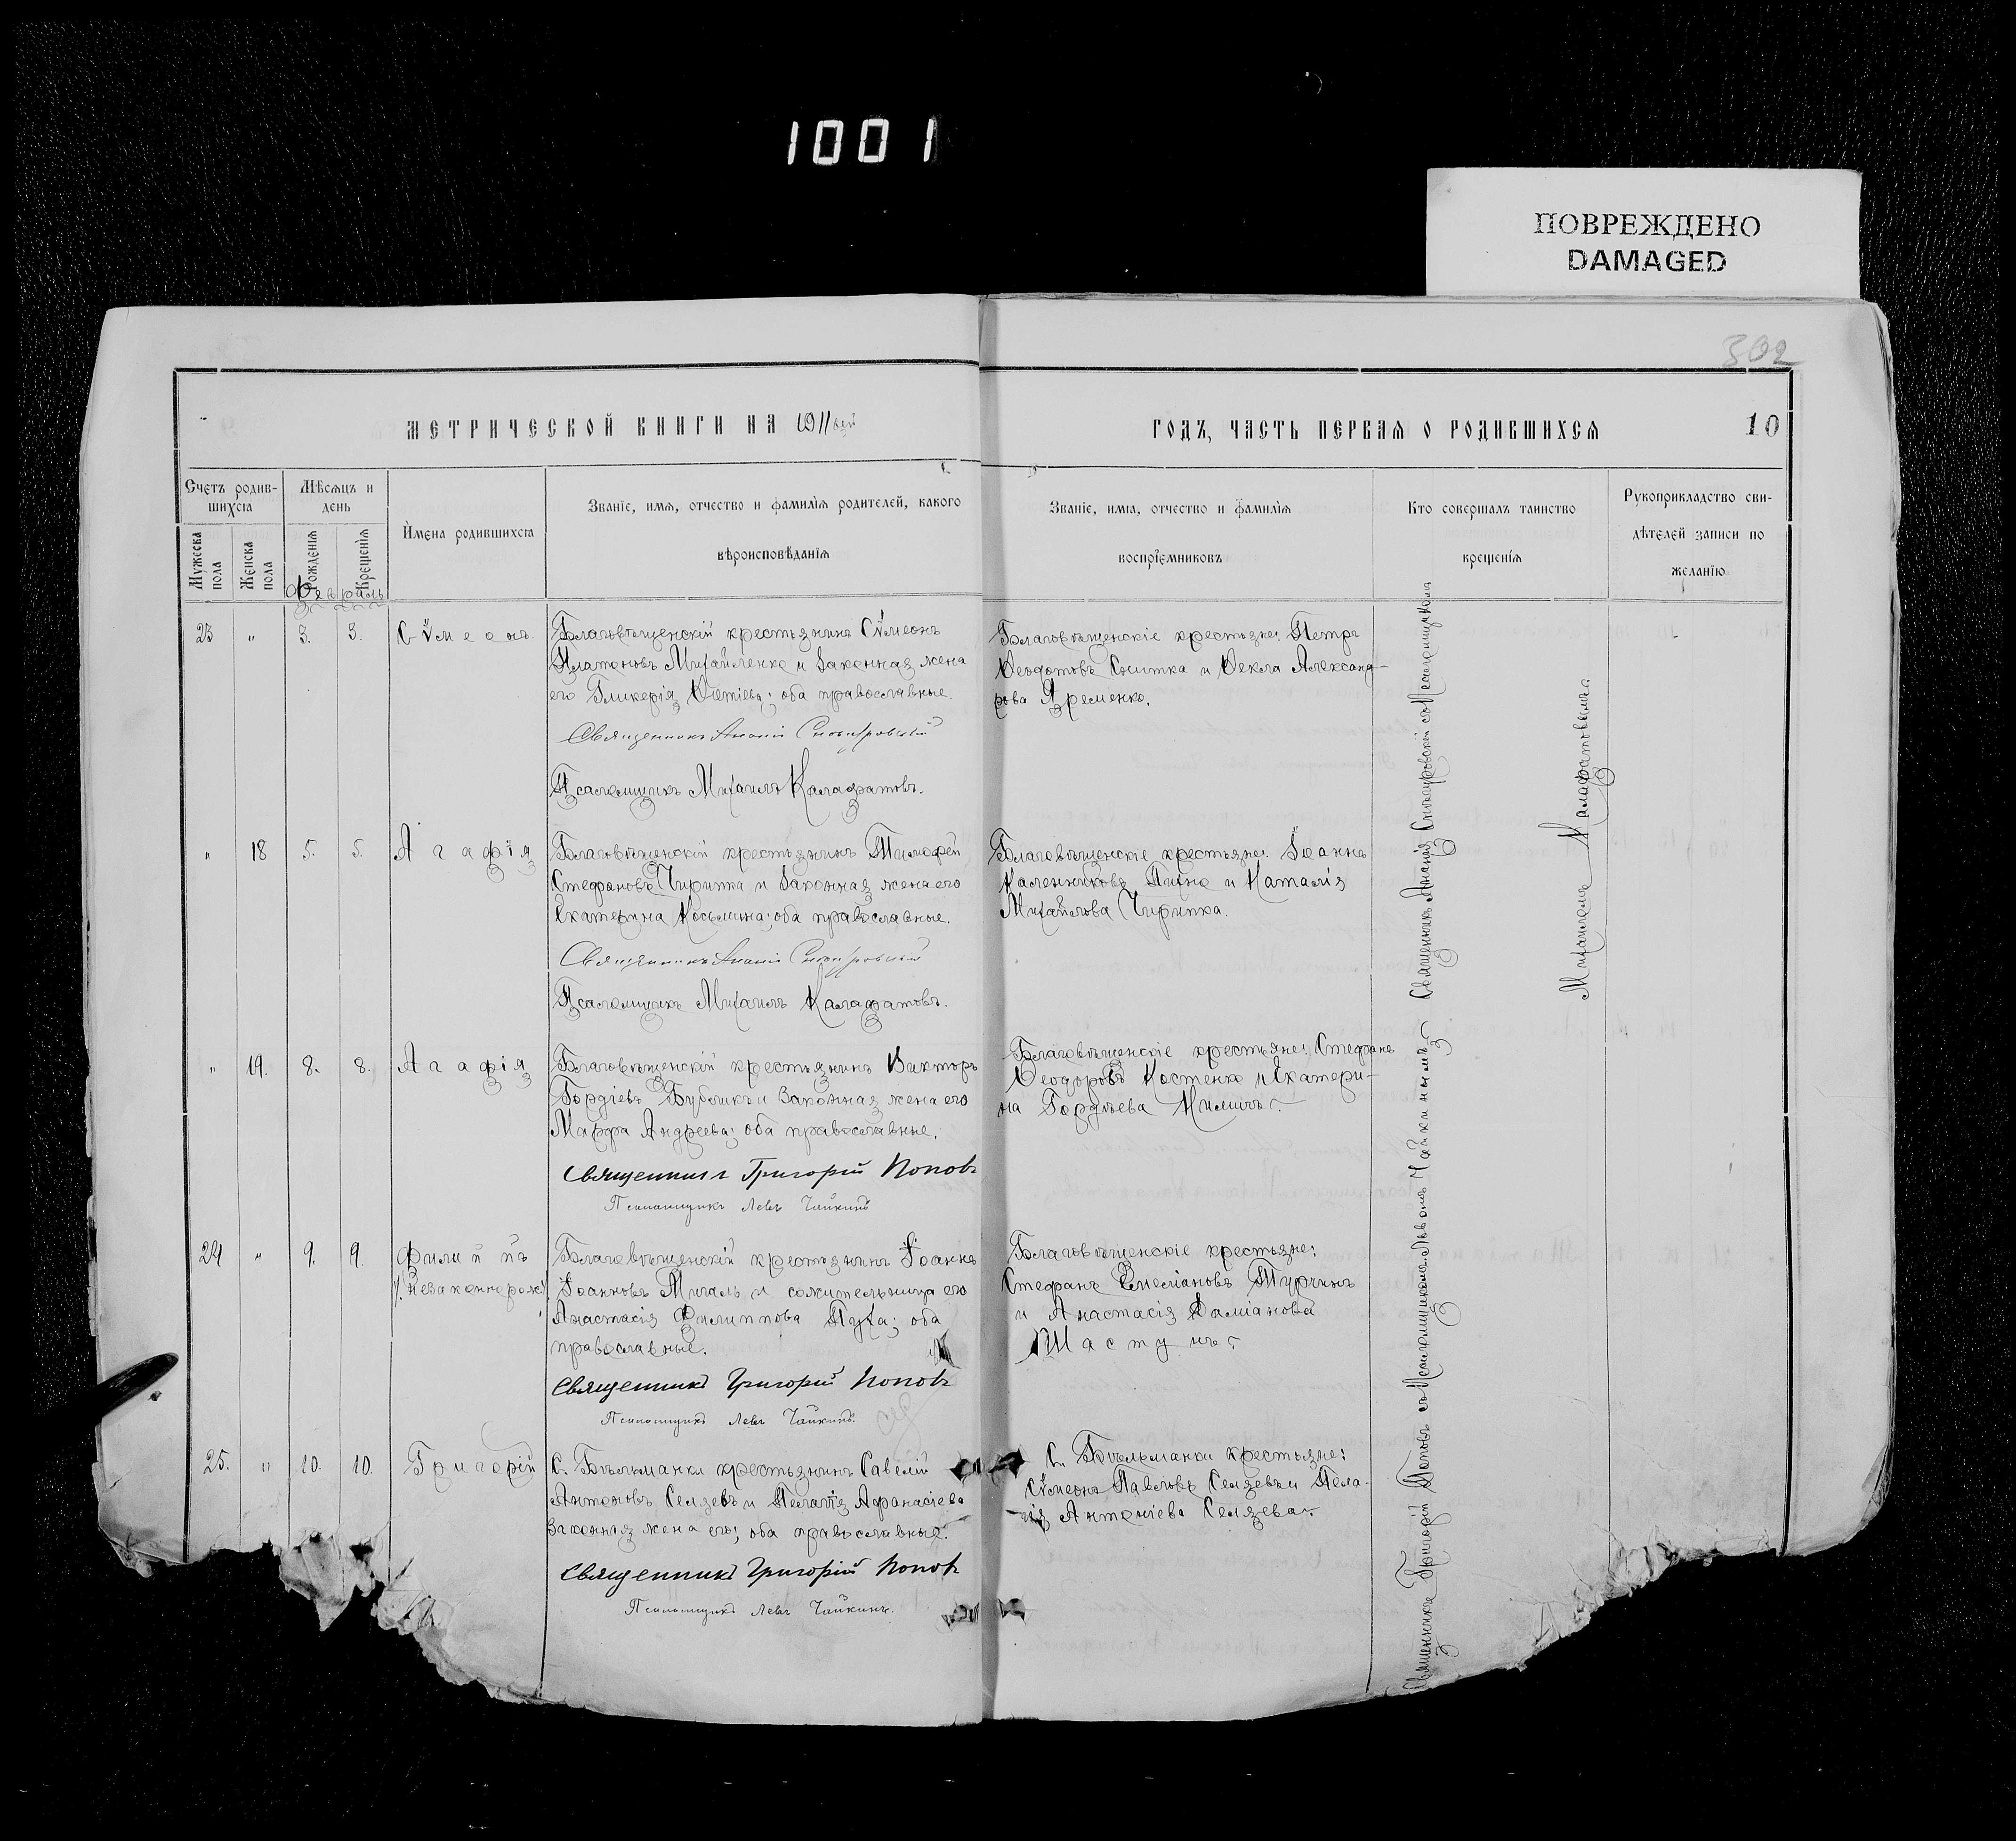 1001
ПОВРЕЖДЕНО
DAMAGED
302
МЕТРИЧЕСКОЙ КНИГИ НА 1911
ГОДЪ, ЧАСТЬ ПЕРВАЯ О РОДИВШИХСЯ
10
Счетъ родив-
шихся
Мужеска пола
Женска пола
Мѣсяцъ и
день
Рожденія
Крещенія
Февраль
Имена родившихся
Званіе, имя, отчество и фамилія родителей, какого
вѣроисповѣданія
Званіе, имя, отчество и фамилія
воспріемниковъ
Кто совершалъ таинство
крещенія
Рукоприкладство сви-
дѣтелей записи по
желанію
23 " 3. 3. Сѵмеонъ
Благовѣщенскій крестьянинъ Сѵмеонъ
Платоновъ Михайленко и законная жена
его Гликерія; оба православные.
Священникъ Ананій
Псаломщикъ Михаилъ Калафатовъ.
Благовѣщенскіе крестьяне: Петръ
Ѳеодотовъ Снитка и Ѳекла Александ-
рова Яременко.
" 18 5. 5. Агафія
Благовѣщенскій крестьянинъ Тимофей
Стефановъ Чирипка и законная жена его
Екатерина Косьмина; оба православные.
Священникъ Ананій
Псаломщикъ Михаилъ Калафатовъ.
Благовѣщенскіе крестьяне: Іоаннъ
Каленниковъ и Наталія
Михайлова Чирипка.
" 19. 8. 8. Агафія
Благовѣщенскій крестьянинъ Викторъ
Гордіевъ Бубликъ и законная жена его
Марфа Андреева; оба православные.
Священникъ Григорій Поповъ
Псаломщикъ Левъ Чайкинъ
Благовѣщенскіе крестьяне: Стефанъ
Ѳеодоровъ Костенко и Екатери-
на Гордѣева
24 " 9. 9. Филиппъ
(незаконнорож.)
Благовѣщенскій крестьянинъ Іоаннъ
Іоанновъ Мигаль и сожительница его
Анастасія Филиппова Пуха; оба
православные.
Священникъ Григорій Поповъ
Псаломщикъ Левъ Чайкинъ.
Благовѣщенскіе крестьяне:
Стефанъ Емеліановъ Турчинъ
и Анастасія Даміанова
Шастунъ.
25. " 10. 10. Григорій
С. Бѣльманки крестьянинъ Савелій
Антоновъ Селязевъ и Пелагія Афанасіева
законная жена его; оба православные.
Священникъ Григорій Поповъ
Псаломщикъ Левъ Чайкинъ.
С. Бѣльманки крестьяне:
Сѵмеонъ Павловъ Селязевъ и Пела-
гія Антоніева Селязева.
Священникъ Ананія съ Псаломщикомъ
Михаиломъ Калафатовымъ.
Священникъ Григорій Поповъ съ Псаломщикомъ Львомъ Чайкинымъ